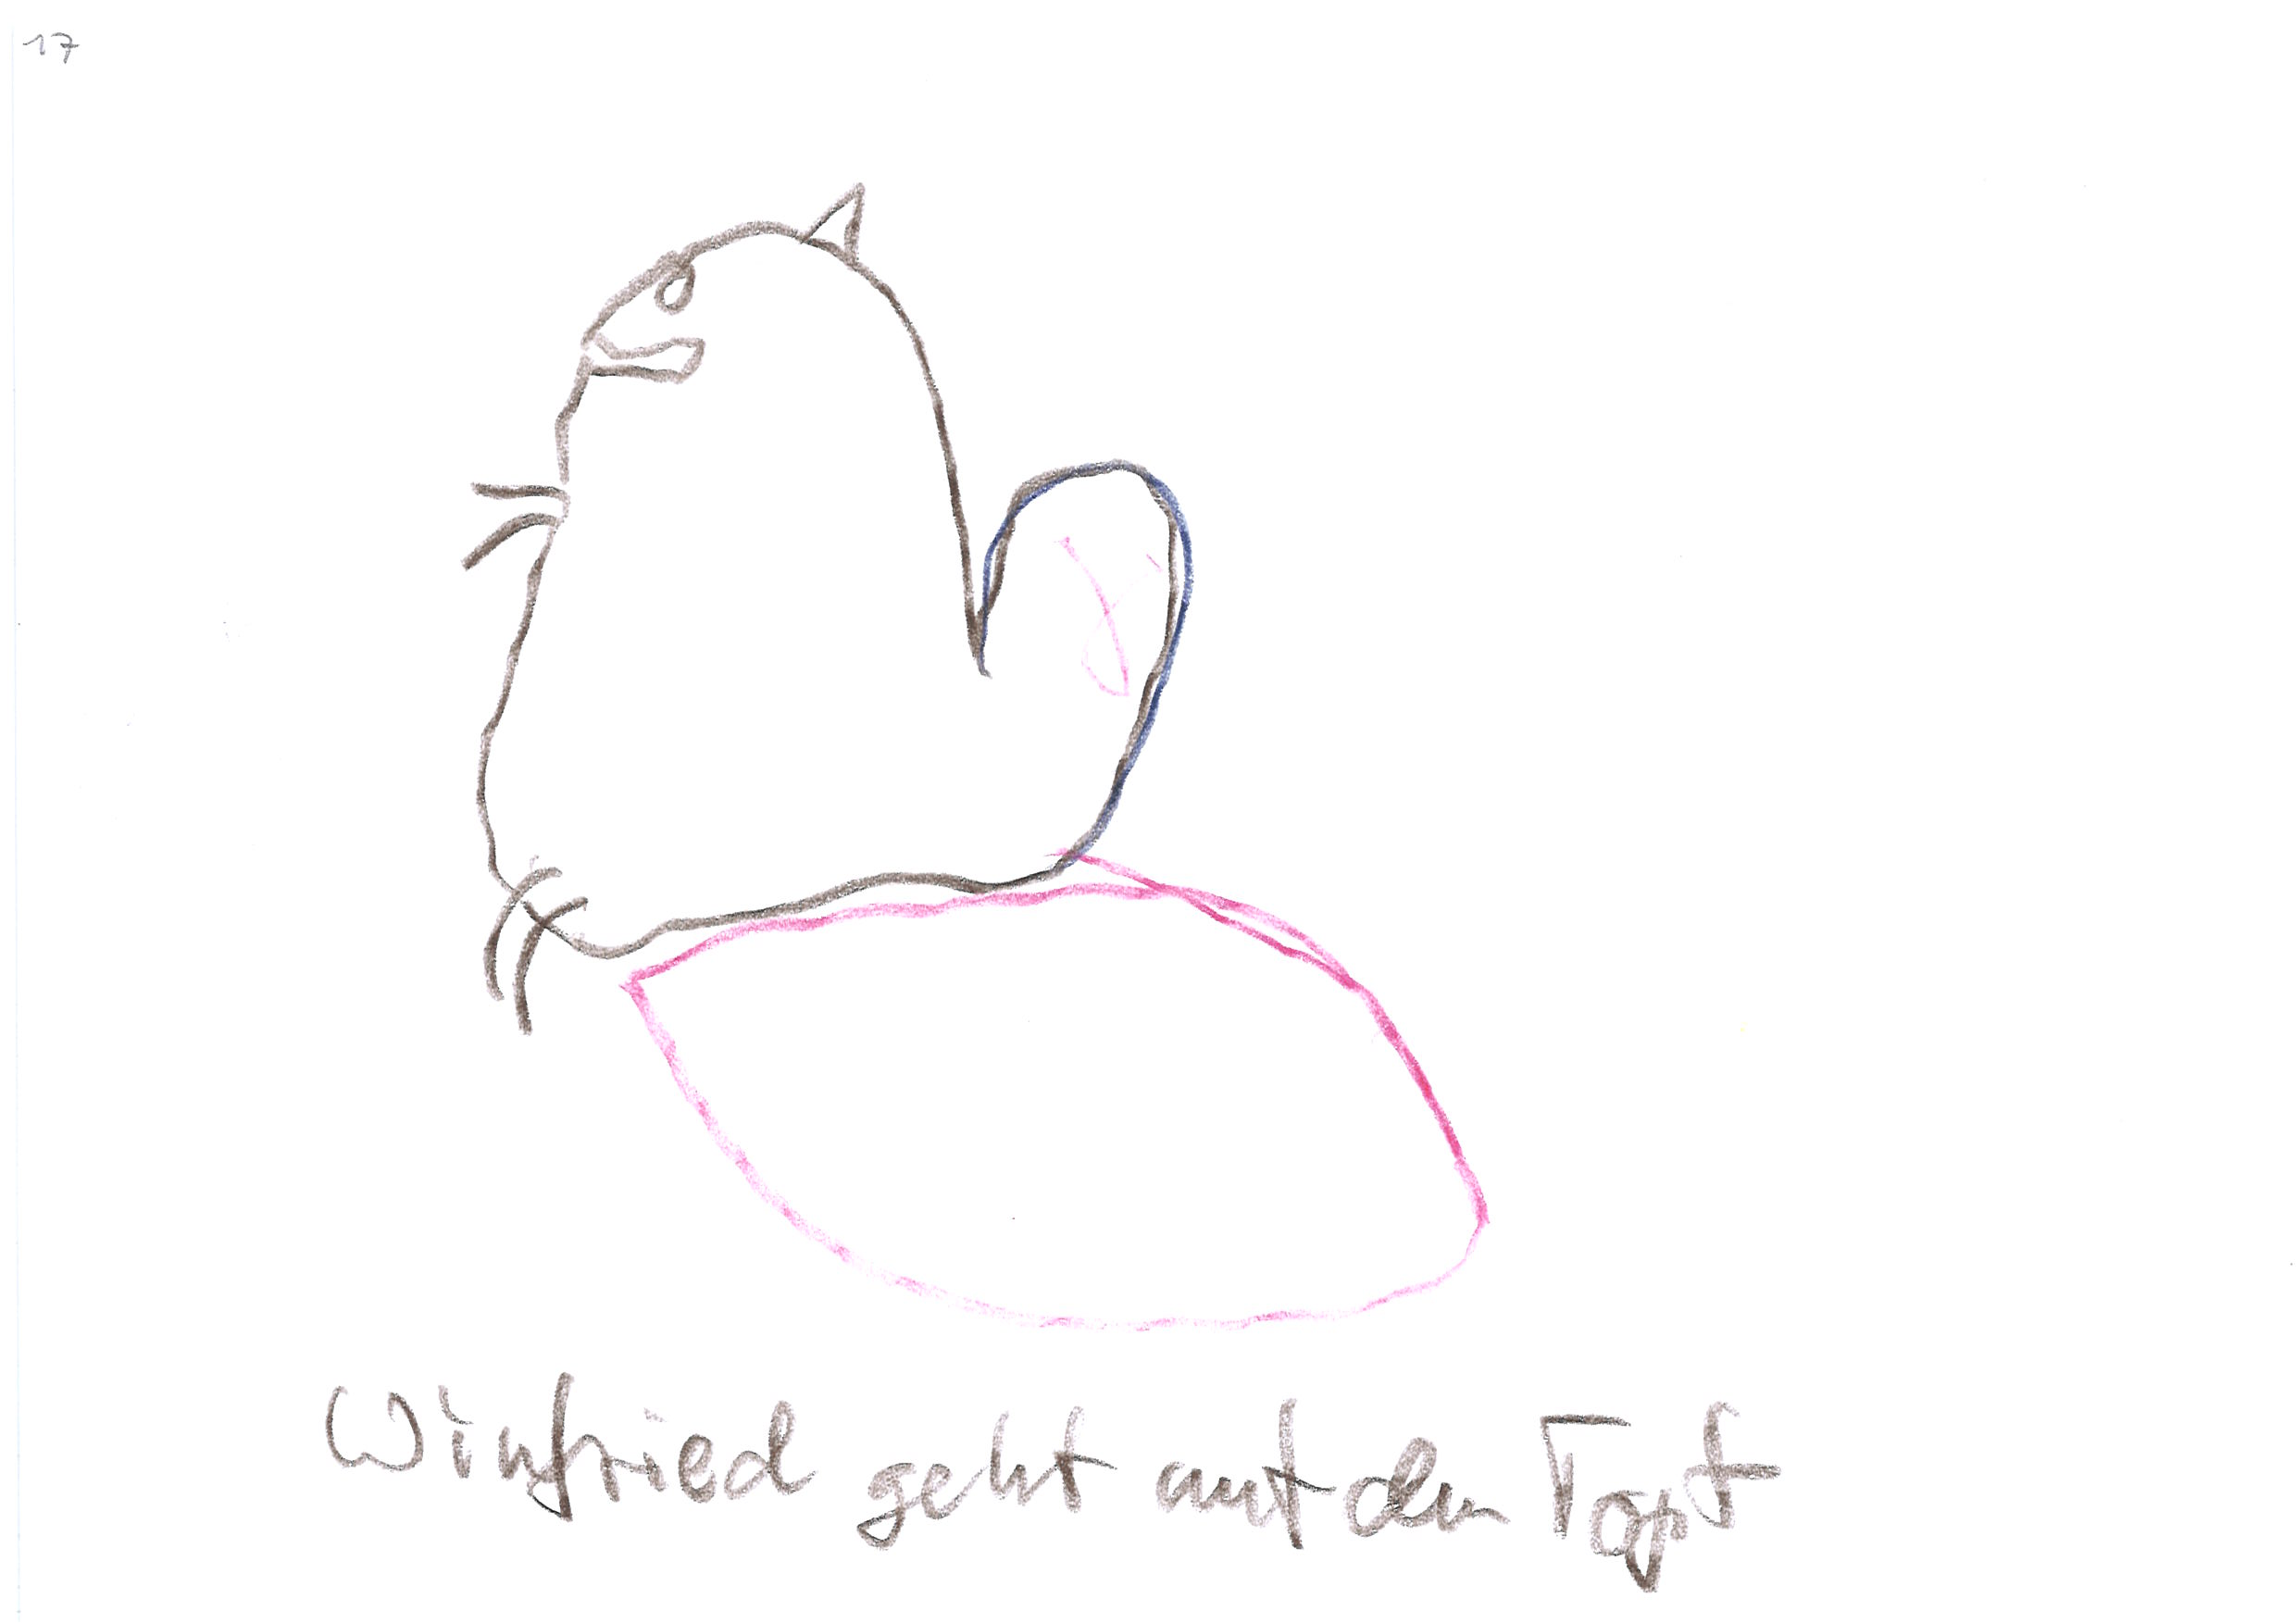 17
Winfried geht auf den Topf